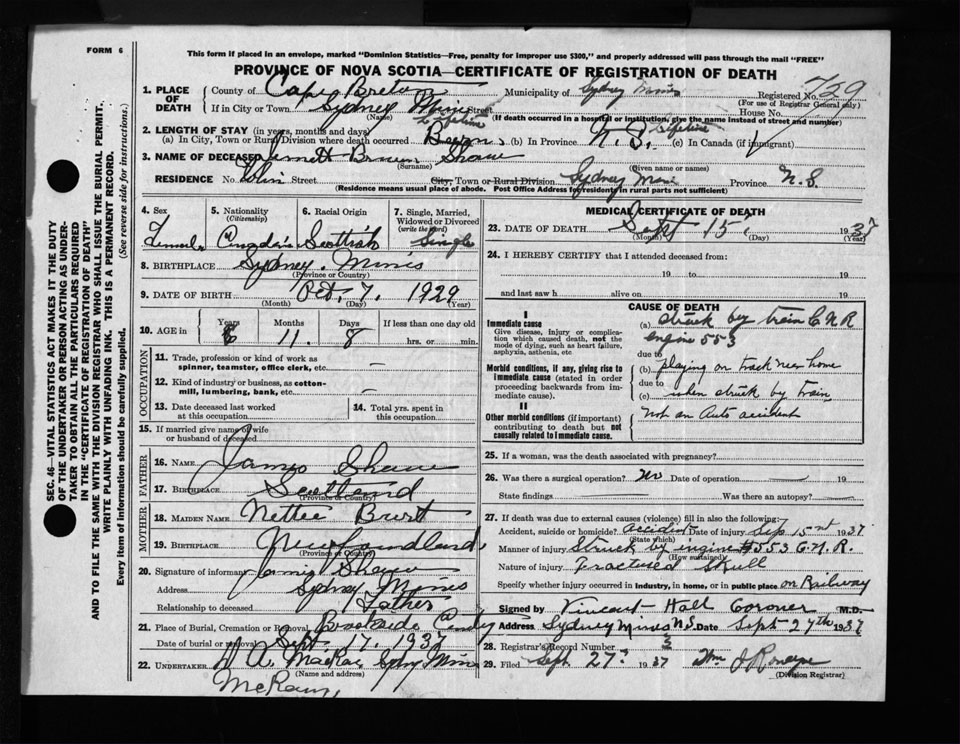 FORM 6
This form if placed in an envelope, marked "Dominion Statistics—Free, penalty for improper use $300," and properly addressed will pass through the mail "FREE"
PROVINCE OF NOVA SCOTIA—CERTIFICATE OF REGISTRATION OF DEATH
1. PLACE OF DEATH
County of Cape Breton Municipality of Sydney Mines Registered No. 759
(For use of Registrar General only)
If in City or Town Sydney Mines Street House No.
(Name) (If death occurred in a hospital or institution, give the name instead of street and number)
2. LENGTH OF STAY (in years, months and days)
(a) In City, Town or Rural Division where death occurred (b) In Province N.S. Lifetime (c) In Canada (if immigrant)
3. NAME OF DECEASED Shaw
(Surname) (Given name or names)
RESIDENCE No. Street City, Town or Rural Division Sydney Mines Province N.S.
(Residence means usual place of abode. Post Office Address for residents in rural parts not sufficient)
4. Sex
Female
5. Nationality
(Citizenship)
Canadian
6. Racial Origin
Scottish
7. Single, Married, Widowed or Divorced
(write the word)
Single
8. BIRTHPLACE Sydney Mines
(Province or Country)
9. DATE OF BIRTH Oct. 7, 1929
(Month) (Day) (Year)
10. AGE in Years Months Days If less than one day old
11 8 hrs. or min.
OCCUPATION
11. Trade, profession or kind of work as spinner, teamster, office clerk, etc. —
12. Kind of industry or business, as cotton-mill, lumbering, bank, etc. —
13. Date deceased last worked at this occupation
14. Total yrs. spent in this occupation
15. If married give name of wife or husband of deceased
FATHER
16. NAME James Shaw
17. BIRTHPLACE Scotland
(Province or Country)
MOTHER
18. MAIDEN NAME Nettie
19. BIRTHPLACE Newfoundland
(Province or Country)
20. Signature of informant Shaw
Address Sydney Mines
Relationship to deceased Father
21. Place of Burial, Cremation or Removal Brookside
Date of burial or removal Sept 17, 1937
22. UNDERTAKER A. MacRae Sydney Mines
(Name and address)
MEDICAL CERTIFICATE OF DEATH
23. DATE OF DEATH Sept 15, 1937
(Month) (Day) (Year)
24. I HEREBY CERTIFY that I attended deceased from:
19 to 19
and last saw h alive on 19
CAUSE OF DEATH
I
Immediate cause
Give disease, injury or complication which caused death, not the mode of dying, such as heart failure, asphyxia, asthenia, etc
(a) Struck by train C.N.R
engine 553
Morbid conditions, if any, giving rise to immediate cause (stated in order proceeding backwards from immediate cause).
due to
(b) playing on track near home
due to
(c) when struck by train
II
Other morbid conditions (if important) contributing to death but not causally related to immediate cause.
Not an Auto accident
25. If a woman, was the death associated with pregnancy?
26. Was there a surgical operation? no Date of operation — 19
State findings Was there an autopsy? —
27. If death was due to external causes (violence) fill in also the following:
Accident, suicide or homicide? accident Date of injury Sep 15th 1937
(State which)
Manner of injury Struck by engine #553 C.N.R.
(How sustained)
Nature of injury Fractured Skull
Specify whether injury occurred in industry, in home, or in public place on Railway
Signed by Vincent Hall Coroner M.D.
Address Sydney Mines N.S. Date Sept 27th 1937
28. Registrar's Record Number
29. Filed Sept. 27 1937
(Division Registrar)
SEC. 46—VITAL STATISTICS ACT MAKES IT THE DUTY OF THE UNDERTAKER OR PERSON ACTING AS UNDERTAKER TO OBTAIN ALL THE PARTICULARS REQUIRED IN THE "CERTIFICATE OF REGISTRATION OF DEATH" AND TO FILE THE SAME WITH THE DIVISION REGISTRAR WHO SHALL ISSUE THE BURIAL PERMIT.
WRITE PLAINLY WITH UNFADING INK. THIS IS A PERMANENT RECORD.
Every item of information should be carefully supplied. (See reverse side for instructions.)